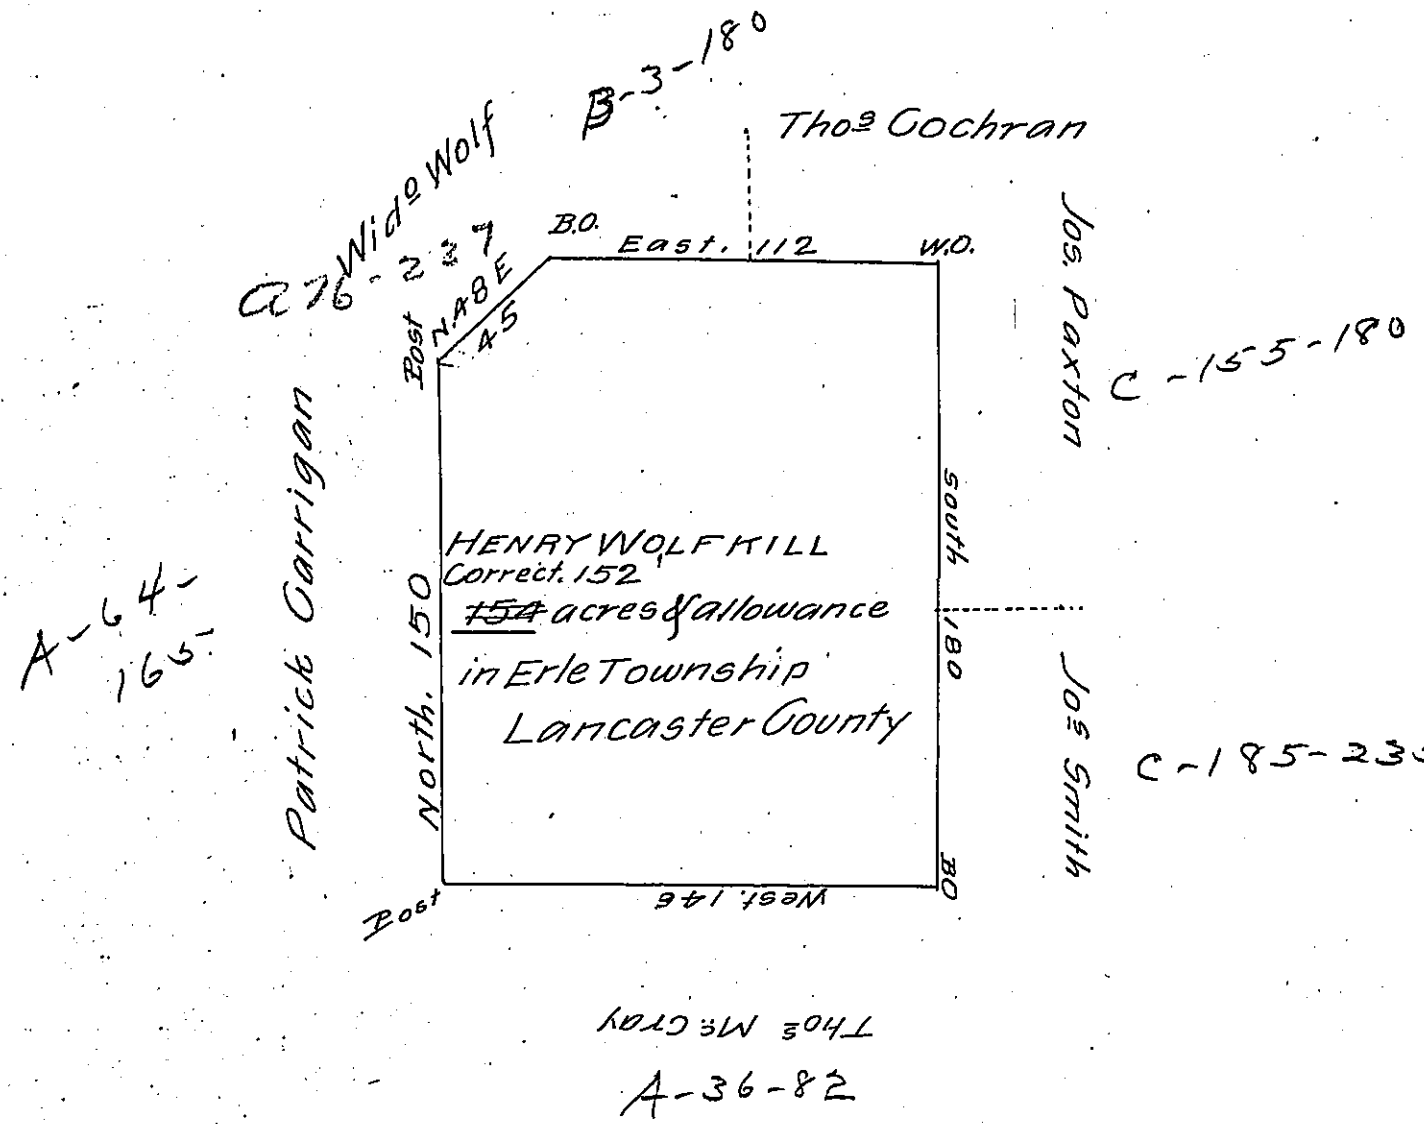 B-3-180
Thoˢ Cochran
Widº Wolf
A76-237
B.O.
East. 112
W.O.
N.48E
45
Post
Jos. Paxton
C-155-180
Patrick Carrigan
A-64-
165
North. 150
South 180
HENRY WOLFKILL
Correct. 152
154 acres & allowance
in Erle Township
Lancaster County
Joˢ Smith
C-185-23
Post
West. 146
BO
Thoˢ Mc Cray
A-36-82